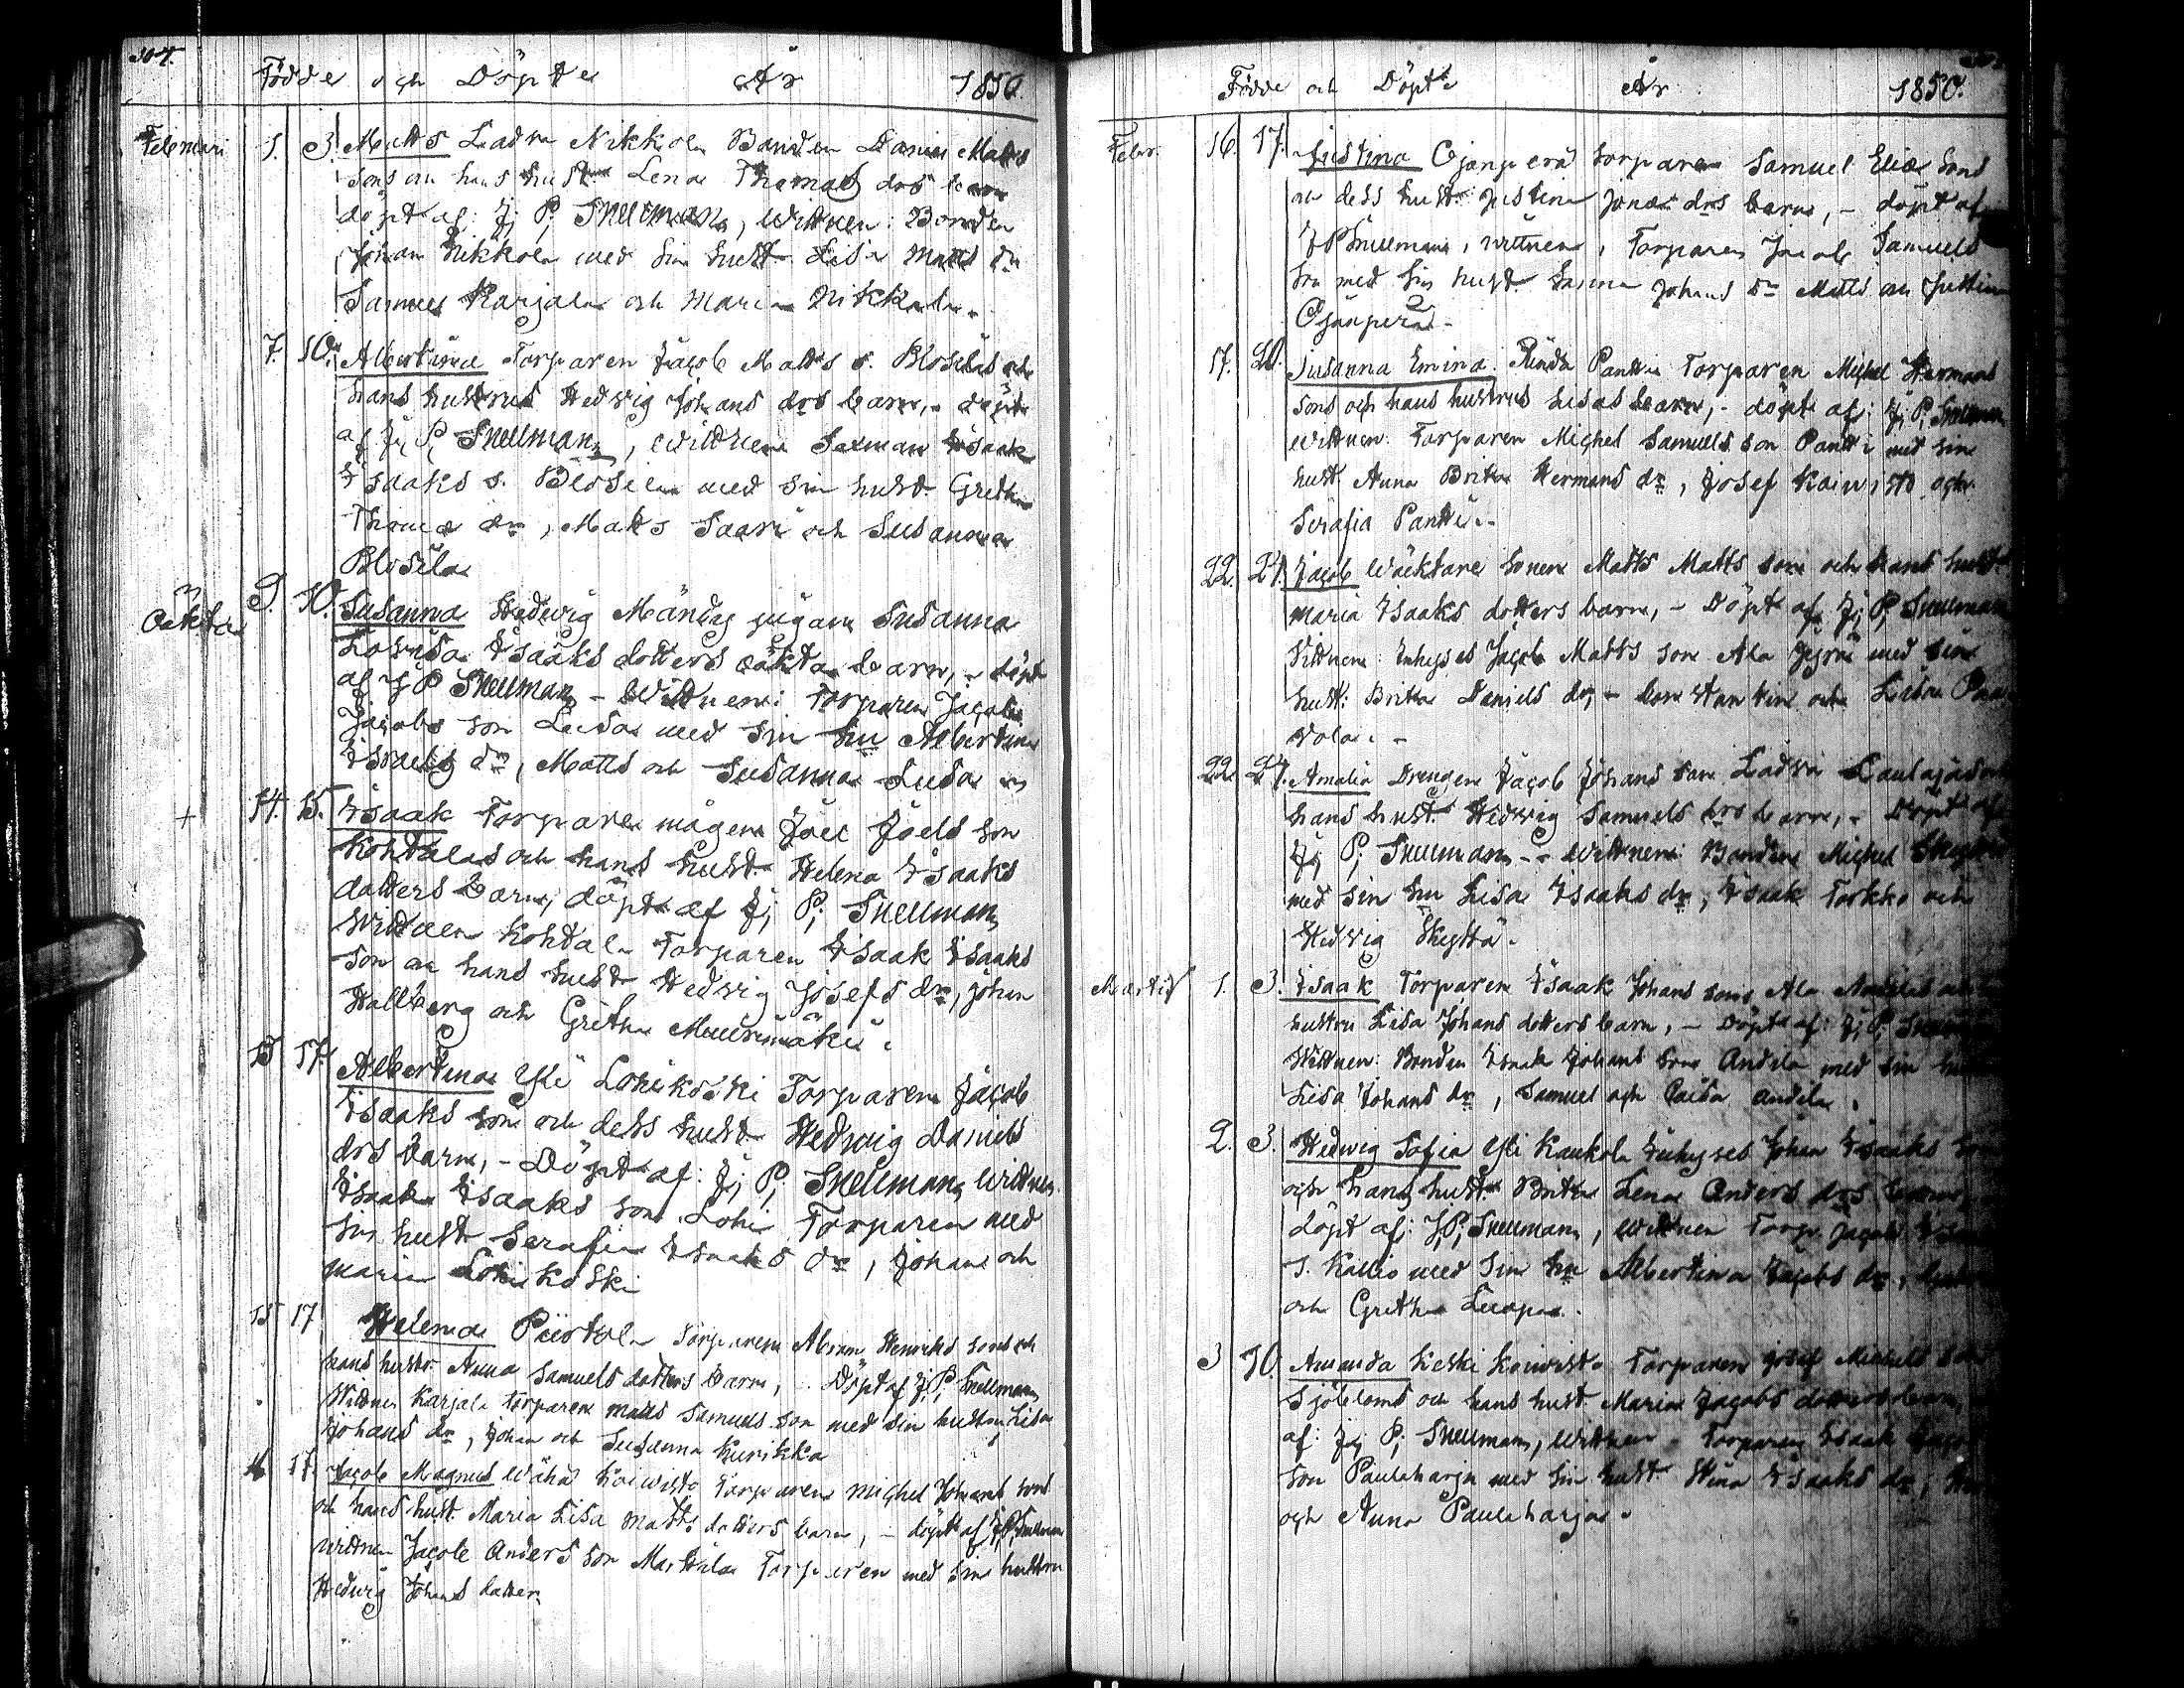 304.
Födde och Döpte År 1850.
Februari 1. 3. Matts Ladva Nikkola Bonden Daniel Matts
sons och hans hust Lena Thomas drs barn
döpt af: J. P. Snellman, Wittnen: Bonden
Johan Nikkola med sin hust Lisa Matts dr
Samuel Karjala och Maria Nikkola.
7. 10. Albertina Torparen Jacob Matts s. Blosilas och
hans hustrus Hedvig Johans drs barn, döpt
af J. P. Snellman, Wittnen Isaak
Isaaks s. Blosila med sin hust Gretha
Thomæ dr, Matts Saari och Susanna
Blosila
Oäkta 9. 10. Susanna Hedvig Mändag pigan Susanna
Lovisa Isaaks dotters oäkta barn, döpt
af J P Snellman - Wittnen: Torparen Jacob
Jacobs son Lusa med sin hu Albertina
Israels dr, Matts och Susanna Lusa
+ 14. 15. Isaak Torpare mågen Joel Joels son
Kohtalas och hans hust Helena Isaaks
dotters barn, döpt af J. P. Snellman
Wittnen Kohtala Torparen Isaak Isaaks
son och hans hust Hedvig Josefs dr, Johan
Hallberg och Gretha Muurimäki.
15 17. Albertina Yli Lohikoski Torparen Jacob
Isaaks son och dess hust Hedvig Daniels
drs barn, - Döpt af: J. P. Snellman Wittnen
Isaak Isaaks son Lohi Torparen med
sin hust Serafia Isaaks dr, Johan och
Maria Lohikoski
15 17 Helena Piirtola Torparen Abram Henriks sons och
hans hustr Anna Samuels dotters barn, Döpt af J. P. Snellman
Wittnen Karjala torparen Matts Samuels son med sin hustru Lisa
Johans dr, Johan och Susanna Kurikka
16 17. Jacob Magnus Wähä Koiwisto Torparen Michel Johans sons
och hans hust Maria Lisa Matts dotters barn, - döpt af J. P. Snellman
wittnen Jacob Anders son Marttila Torparen med sin hustru
Hedvig Johans dotter.
Födde och Döpte År 1850.
Febr. 16. 17. Justina Ojanperä torparen Samuel Eliæ sons
och dess hust: Justina Jonæ drs barn, - döpt af
J P Snellman, wittnen, Torparen Jacob Samuels
son med sin hust Sanna Johans dr Matts och Justina
Ojanperä.
17. 20. Susanna Emina Pantti Torparen Michel Hermans
sons och hans hustrus Lisas barn, - döpt af: J. P. Snellman
wittnen: Torparen Michel Samuels son Pantti med sin
hust Anna Brita Hermans dr, Josef Koiwisto och
Serafia Pantti.
22. 24. Jacob Wäcktare sonen Matts Matts son och hans hust
Maria Isaaks dotters barn, - Döpt af J. P. Snellman
Wittnen: Inhyses Jacob Matts son Ala med sin
hust: Brita Daniels dr, - Constantin och Lisa
vola. -
22 24. Amalia Drengen Jacob Johans son Ladva
hans hust Hedvig Samuels drs barn, - Döpt af
J. P. Snellman - - Wittnen: Bonden Michel Skyttä
med sin hu Lisa Isaaks dr, Isaak Torkko och
Hedvig Skyttä.
Martii 1. 3. Isaak Torparen Isaak Johans sons Ala
hustru Lisa Johans dotters barn, - Döpt af: J. P. Snellman
Wittnen: Bonden Isaak Johans son Andila med sin
Lisa Johans dr, Samuel och Caisa Andila.
2. 3. Hedvig Sofia Yli Kaukola Inhyses Johan Isaaks
och hans hust Brita Lena Anders drs barn,
döpt af: J. P. Snellman, wittnen Torp. Jacob
s. Kallio med sin hu Albertina Jacobs dr,
och Gretha Luopa.
3 10. Amanda Keski Koiwisto Torparen Josef Michels
Sjöbloms och hans hust Maria Jacobs dotters barn,
af: J. P. Snellman, Wittnen Torparen Isaak
son Paulaharju med sin hust Stina Isaaks dr,
och Anna Paulaharju.